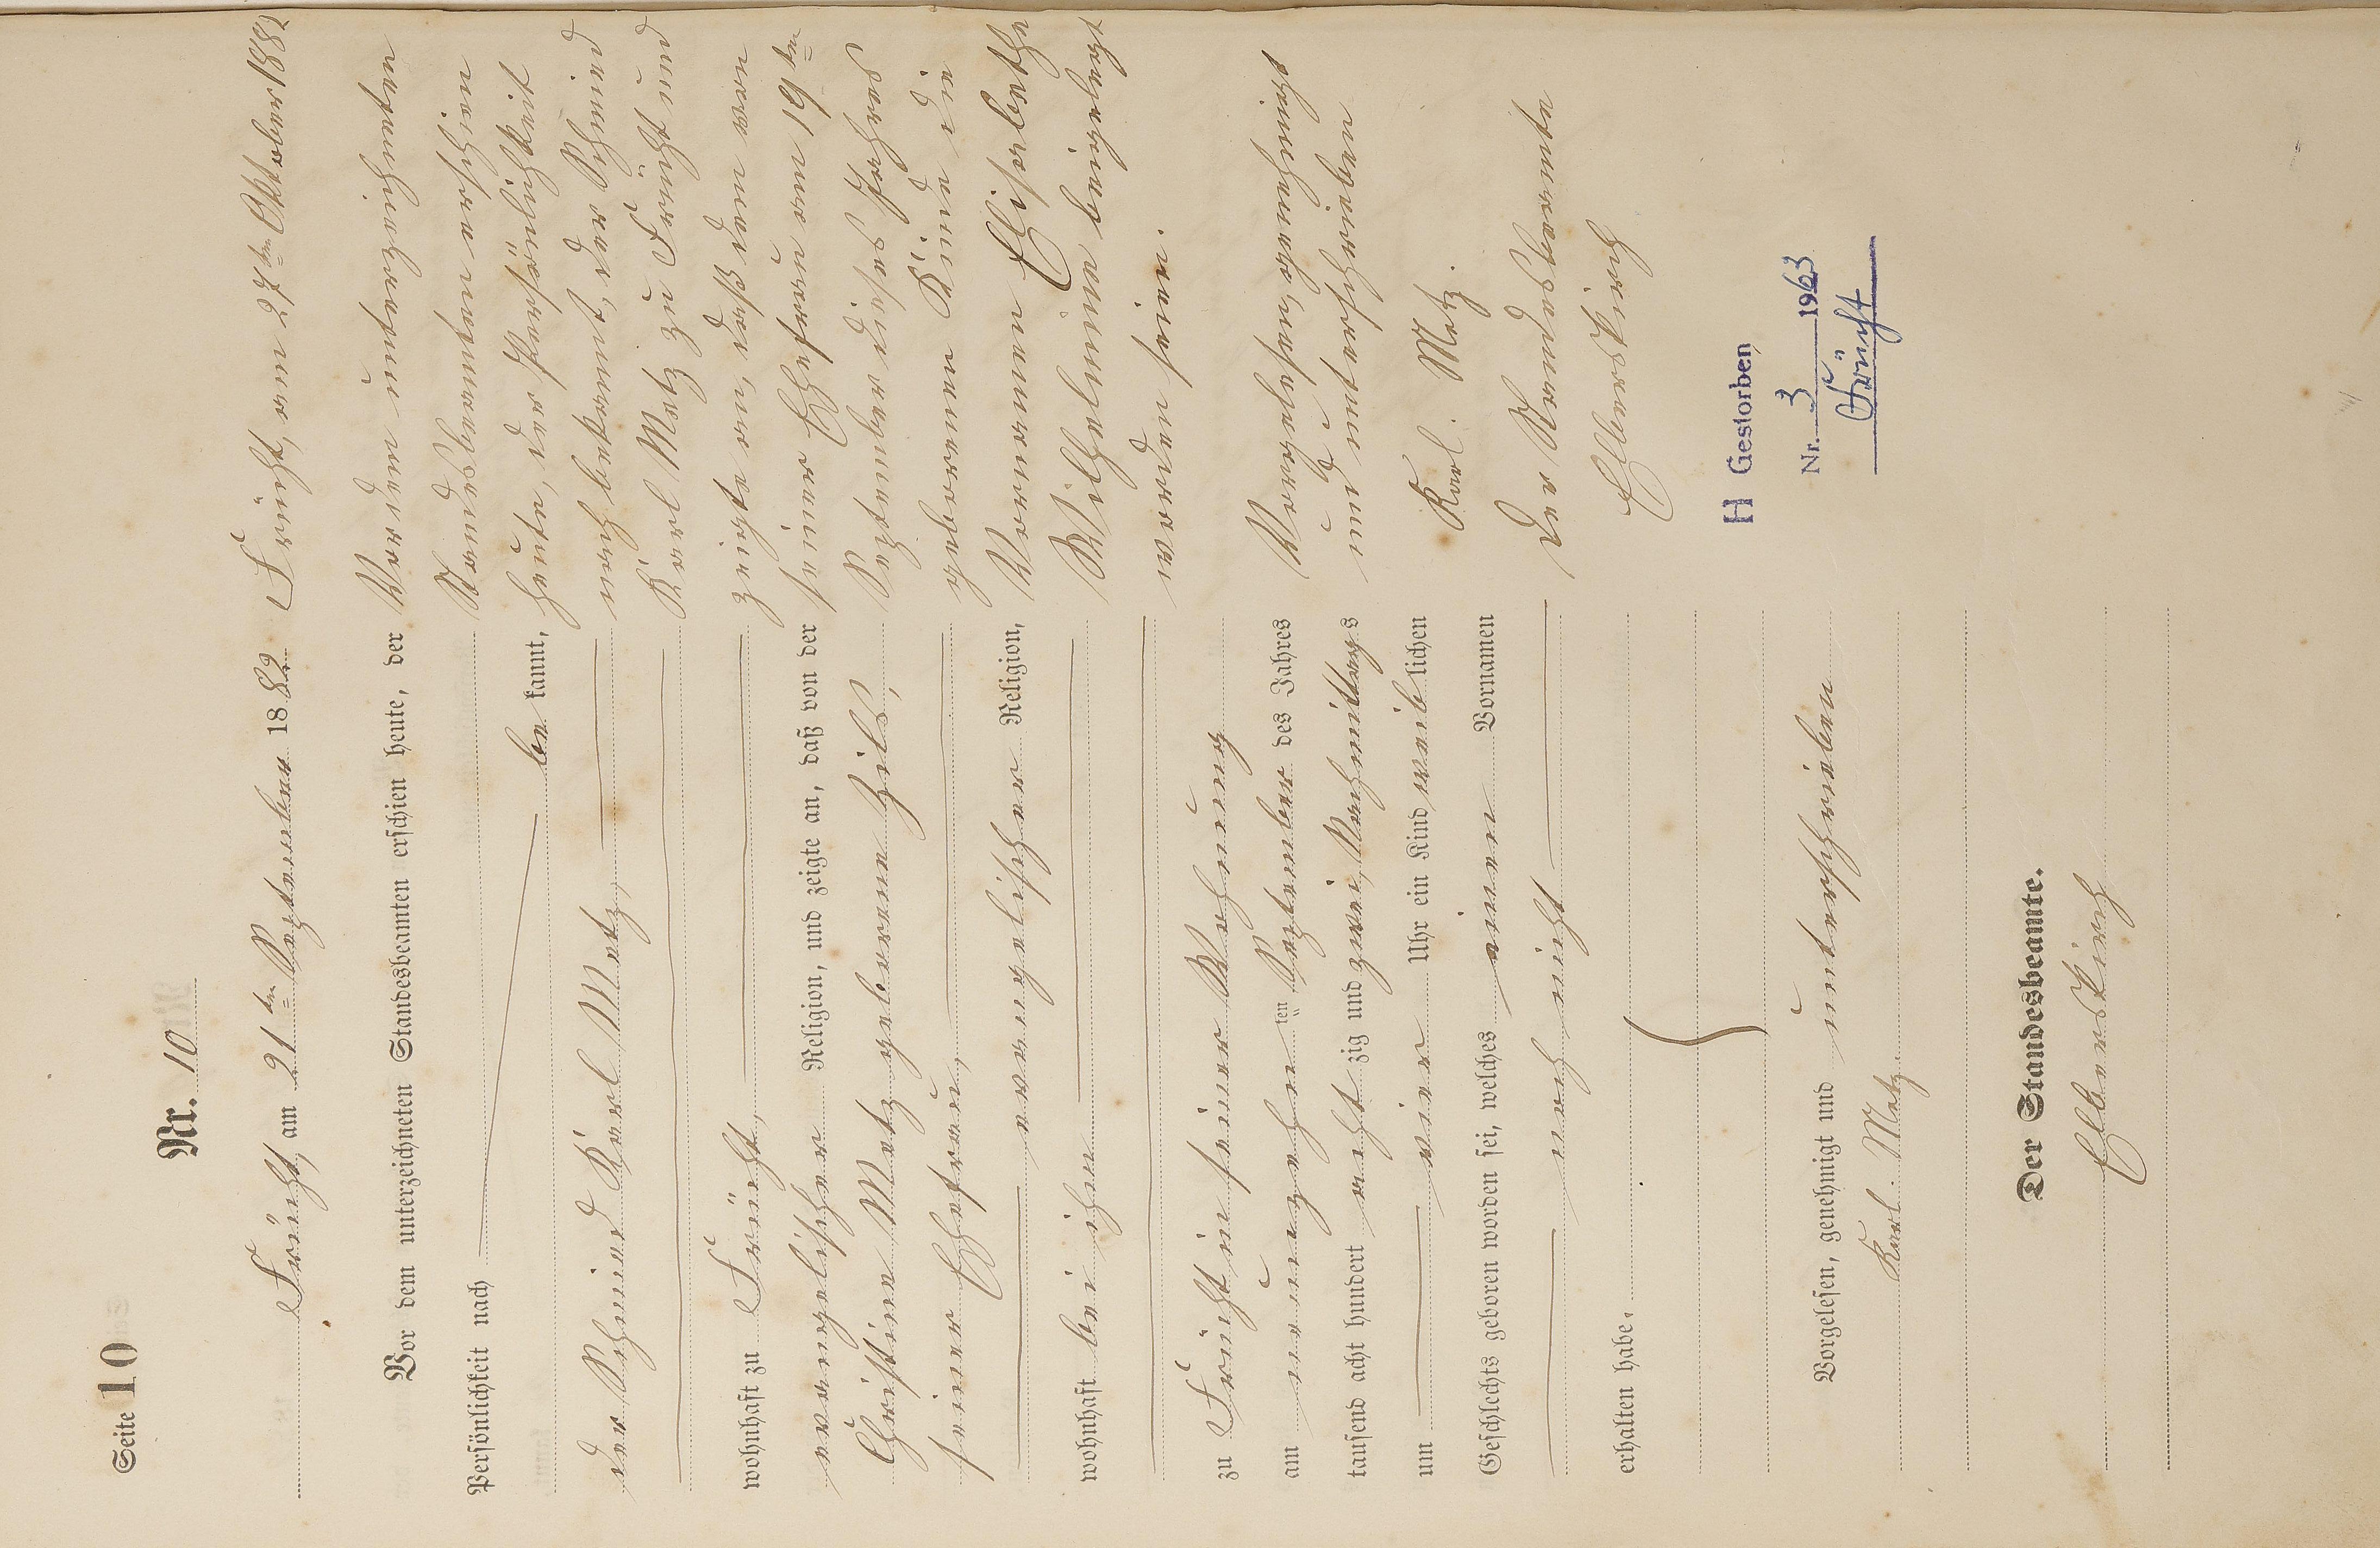 Seite 10
Nr. 10
Frücht, am 21ten September 1882.
Vor dem unterzeichneten Standesbeamten erschien heute, der
Persönlichkeit nach
be kannt,
der Schmied Karl Metz,
wohnhaft zu Frücht,
evangelischer Religion, und zeigte an, daß von der
Christine Metz geborene Hils,
seiner Ehefrau,
evangelischer Religion,
wohnhaft bei ihm
zu Frücht in seiner Wohnung
am neunzehn ten September des Jahres
tausend acht hundert acht zig und zwei, Nachmittags
um vier Uhr ein Kind weib lichen
Geschlechts geboren worden sei, welches einen Vornamen
noch nicht
erhalten habe.
Vorgelesen, genehmigt und unterschrieben
Karl. Metz.
Der Standesbeamte.
Elbertskirch
Frücht, am 27ten Oktober 1882
Vor dem unterzeichneten
Standesbeamten erschien
heute, der Persönlichkeit
nach bekannt, der Schmied
Karl Metz zu Frücht und
zeigte an, daß dem von
seiner Ehefrau am 19ten
September dieses Jahres
geborenen Kinde die
Vornamen Elisabethe
Wilhelmine beigelegt
worden seien.
Vorgelesen, genehmigt
und unterschrieben
Karl. Metz.
Der Standesbeamte
Elbertskirch
H Gestorben,
Nr. 3 1963
Frücht